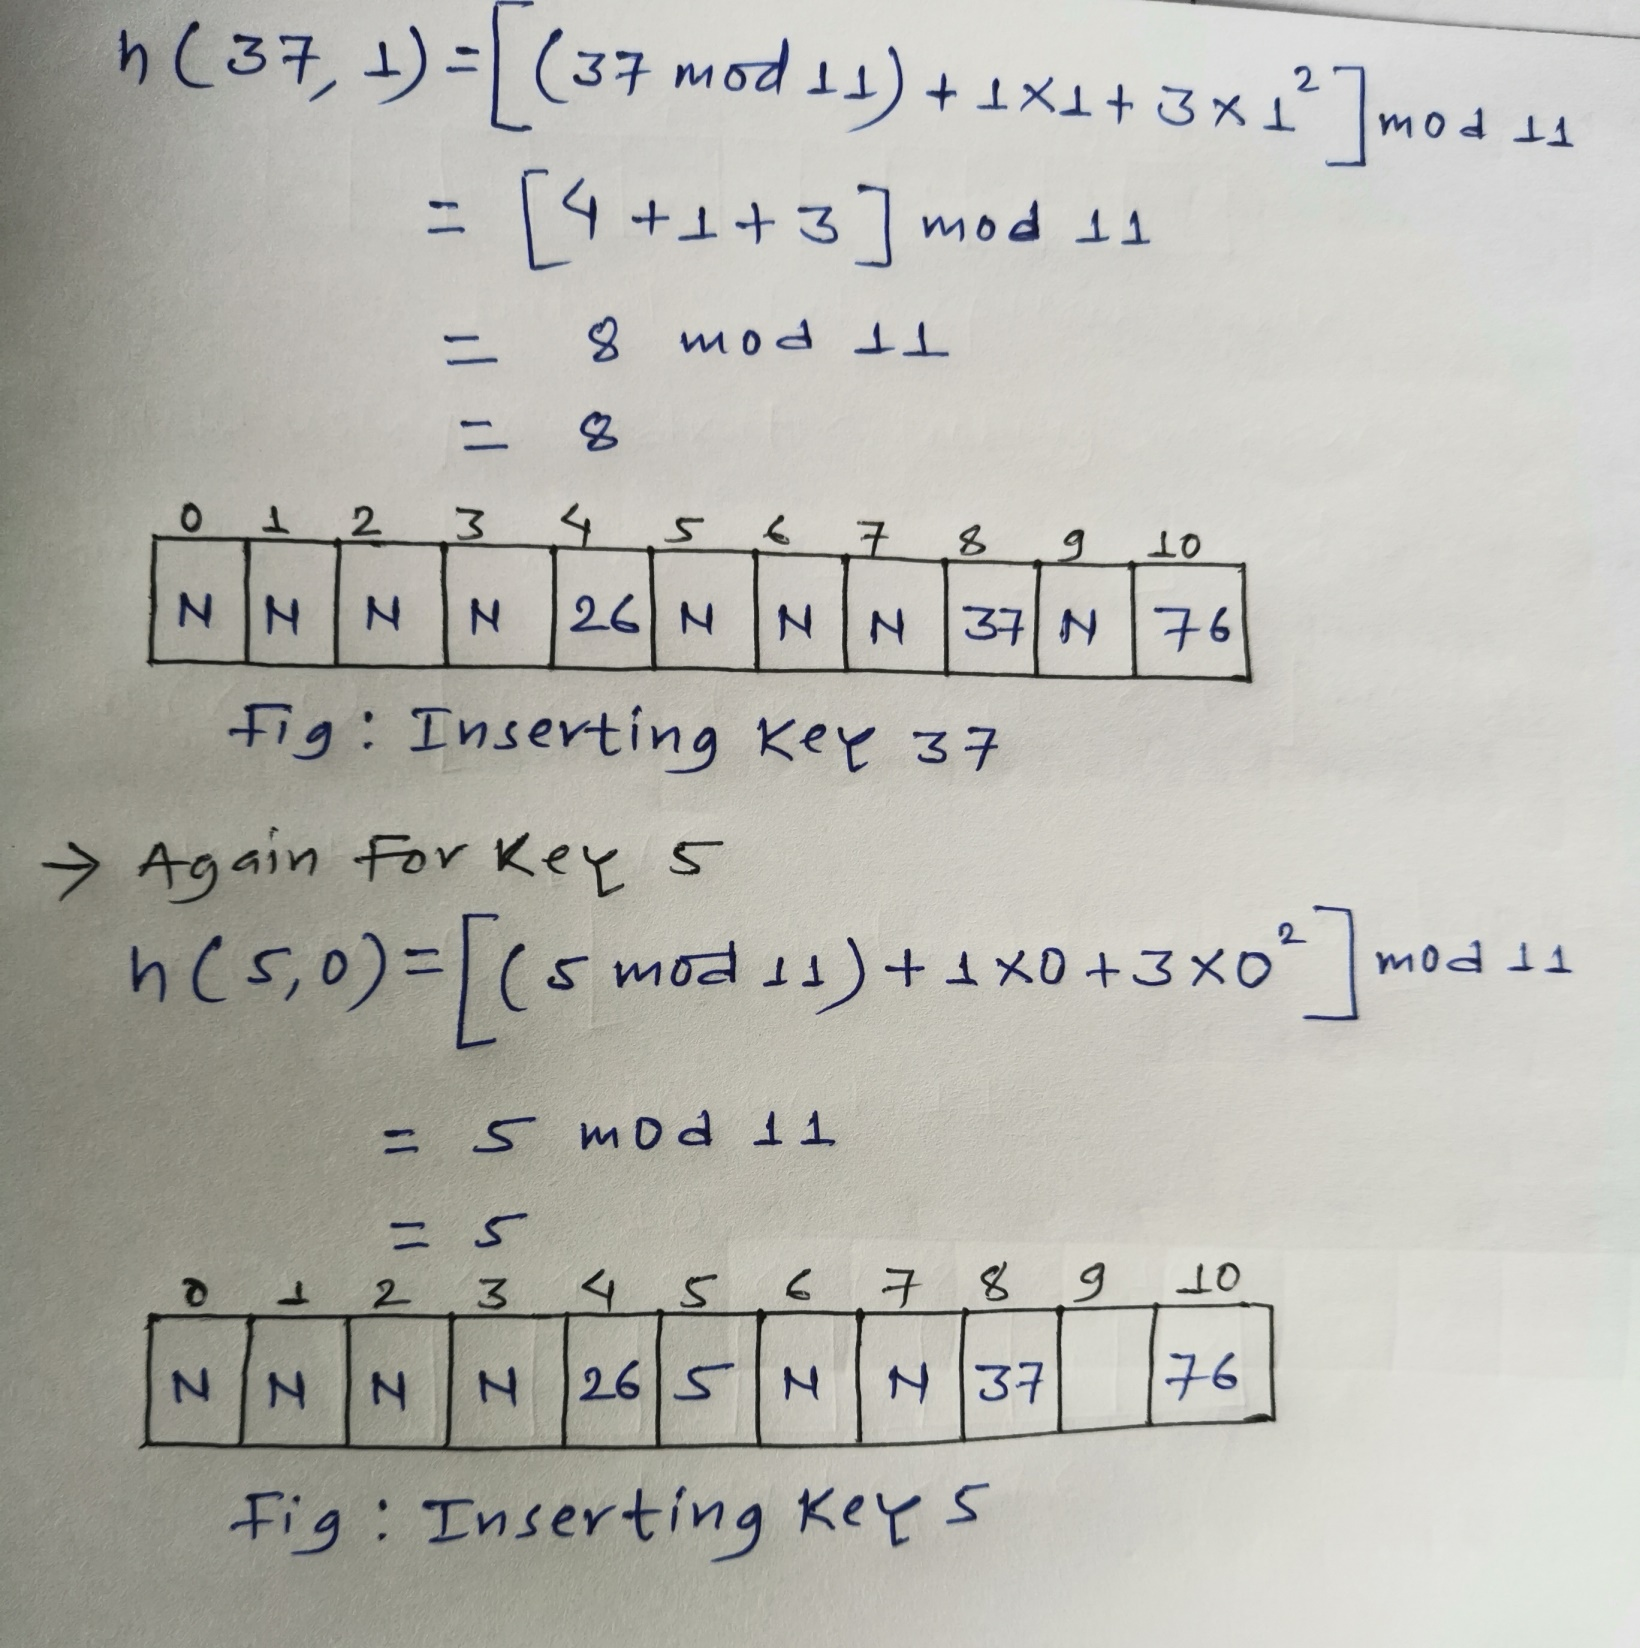 h(37, 1) = [(37 mod 11) + 1×1 + 3×1²] mod 11
= [4 + 1 + 3] mod 11
= 8 mod 11
= 8
0 1 2 3 4 5 6 7 8 9 10
N N N N 26 N N N 37 N 76
Fig: Inserting Key 37
→ Again For Key 5
h(5,0) = [(5 mod 11) + 1×0 + 3×0²] mod 11
= 5 mod 11
= 5
0 1 2 3 4 5 6 7 8 9 10
N N N N 26 5 N N 37 76
Fig: Inserting Key 5